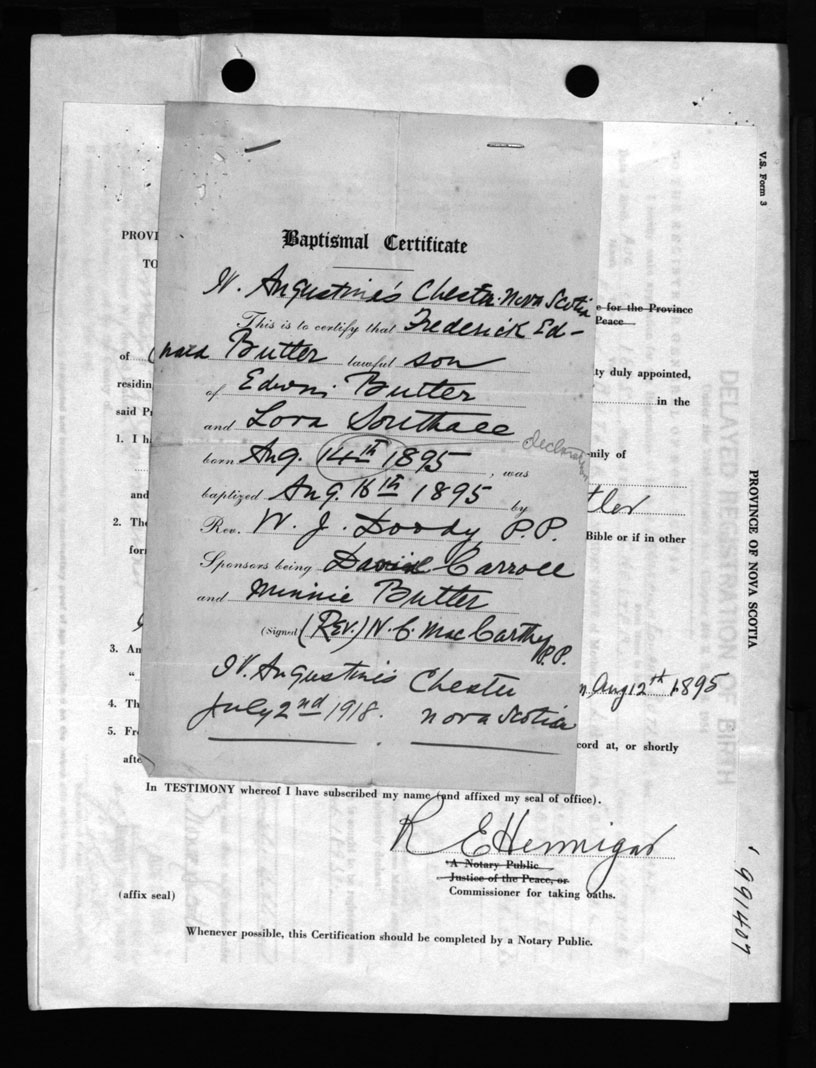 V.S. Form 3
PROVINCE OF NOVA SCOTIA
DELAYED REGISTRATION OF BIRTH
991407
Baptismal Certificate
St. Augustine's Chester Nova Scotia
This is to certify that Frederick Ed-
ward Butler lawful son
of Edwin Butler
and Lora Southall
born Aug. 14th 1895, was
declaration
baptized Aug. 16th 1895 by
Rev. W. J. Doody P.P.
Sponsors being David Carroll
and Minnie Butler
(Signed (Rev.) N. C. MacCarthy
P.P.
St. Augustine's Chester
July 2nd 1918. Nova Scotia
PROVI
TO
e for the Province
Peace
of
ty duly appointed,
residin
in the
said Pr
1. I h
mily of
and
tler
2. The
Bible or if in other
for
3. An
"
n Aug 12th 1895
4. Th
5. Fr
cord at, or shortly
afte
In TESTIMONY whereof I have subscribed my name (and affixed my seal of office).
R E Hennigar
A Notary Public
Justice of the Peace, or
(affix seal) Commissioner for taking oaths.
Whenever possible, this Certification should be completed by a Notary Public.